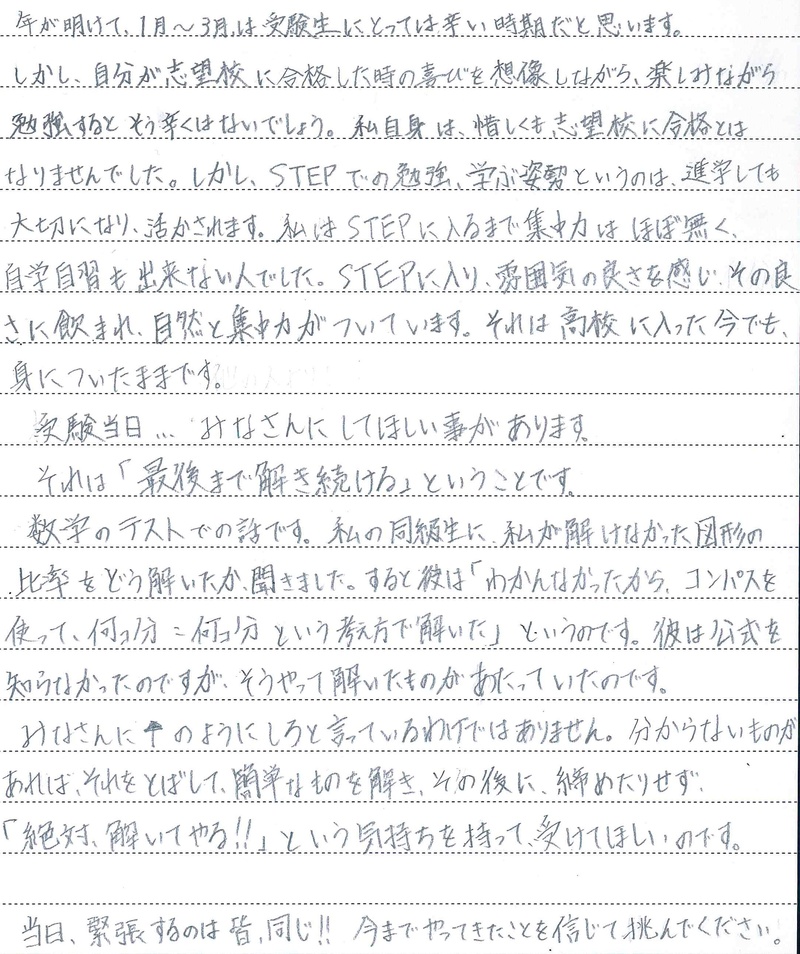 年が明けて、1月～3月は受験生にとっては辛い時期だと思います。
しかし、自分が志望校に合格した時の喜びを想像しながら、楽しみながら
勉強するとそう辛くはないでしょう。私自身は、惜しくも志望校に合格とは
なりませんでした。しかし、STEPでの勉強、学ぶ姿勢というのは、進学しても
大切になり、活かされます。私はSTEPに入るまで集中力はほぼ無く、
自学自習も出来ない人でした。STEPに入り、雰囲気の良さを感じ、その良
さに飲まれ、自然と集中力がついています。それは高校に入った今でも、
身についたままです。
受験当日… みなさんにしてほしい事があります。
それは「最後まで解き続ける」ということです。
数学のテストでの話です。私の同級生に、私が解けなかった図形の
比率をどう解いたか、聞きました。すると彼は「わかんなかったから、コンパスを
使って、何コ分＝何コ分という考え方で解いた」というのです。彼は公式を
知らなかったのですが、そうやって解いたものがあたっていたのです。
みなさんに↑のようにしろと言っているわけではありません。分からないものが
あれば、それをとばして、簡単なものを解き、その後に、締めたりせず、
「絶対、解いてやる!!」という気持ちを持って、受けてほしいのです。
当日、緊張するのは皆、同じ!! 今までやってきたことを信じて、挑んでください。